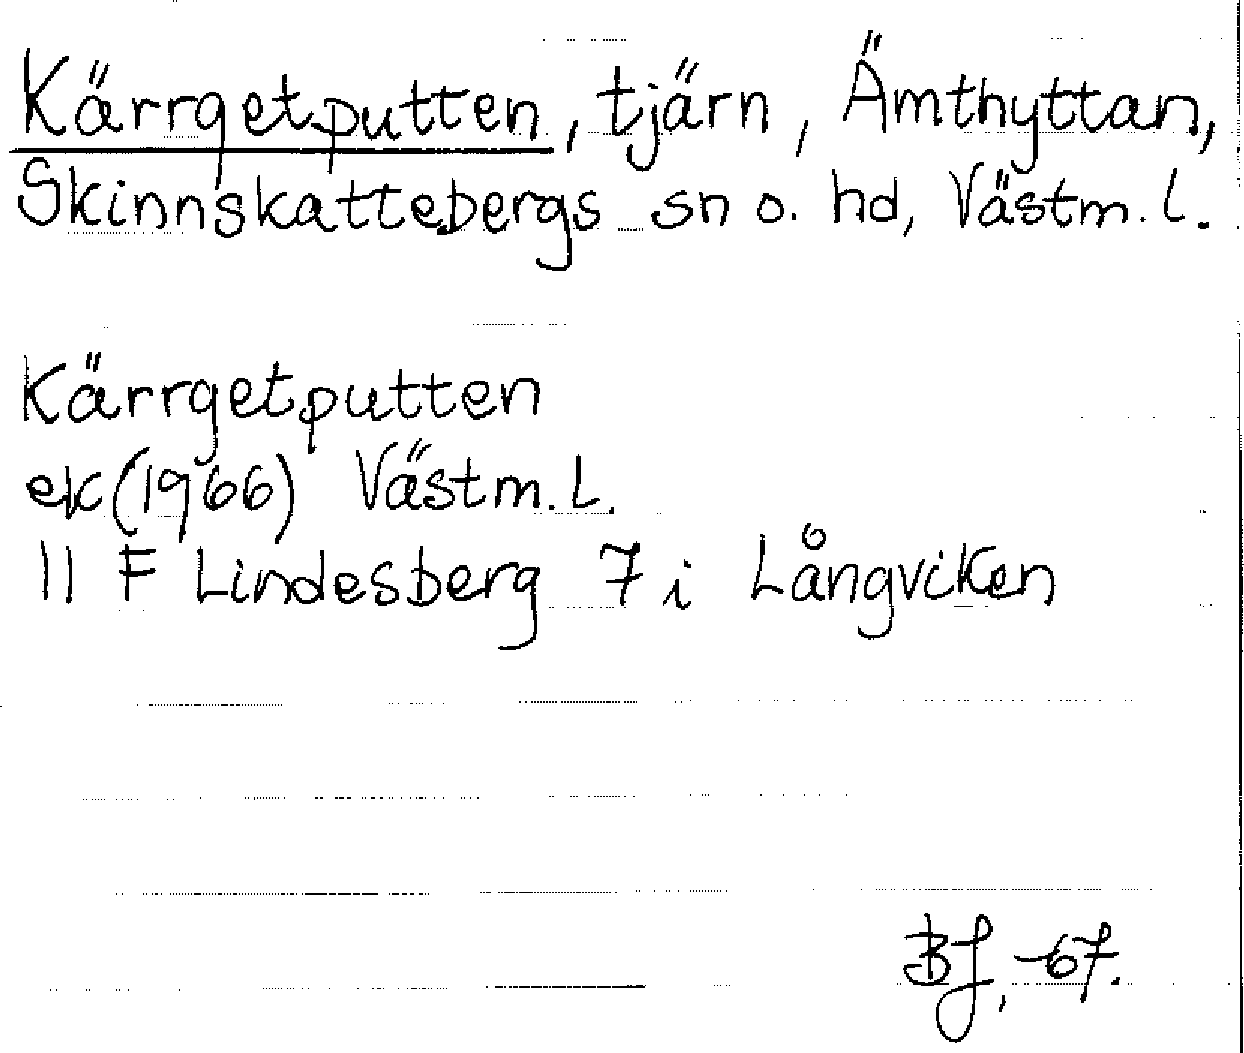 Kärrgetputten, tjärn, Ämthyttan,
Skinnskattebergs sn o. hd, Västm. l.
Kärrgetputten
ek (1966) Västm. L.
11 F Lindesberg 7 i Långviken
BJ, -67.